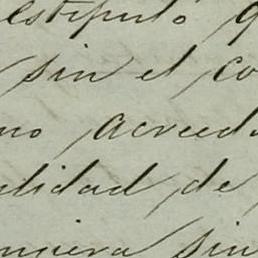 estipuló q
sin el co
no acreed
lidad de
niera sin